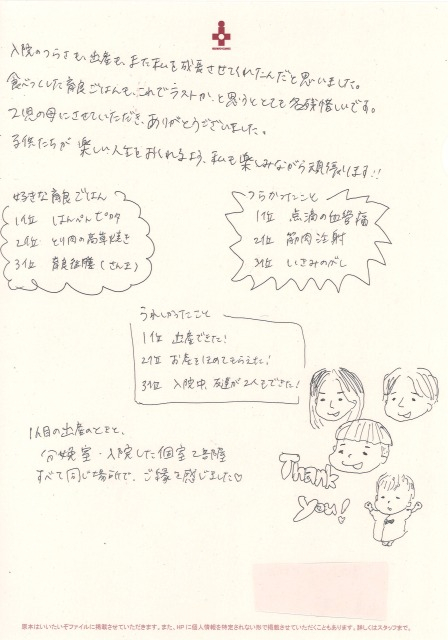 入院のつらさも、出産も、また私を成長させてくれたんだと思いました。
食べつくした育良ごはんも、これでラストか、と思うととても名残惜しいです。
2児の母にさせていただき、ありがとうございました。
子供たちが 楽しい人生をおくれるよう、私も楽しみながら頑張ります!!
好きな育良ごはん
1位 はんぺんピカタ
2位 とり肉の高草焼き
3位 育良 (さんま)
つらかったこと
1位 点滴の血管痛
2位 筋肉注射
3位 いきみのがし
うれしかったこと
1位 出産できた!
2位 お産をほめてもらえた!
3位 入院中、友達が2人もできた!
1人目の出産のときと、
分娩室・入院した個室2部屋
すべて同じ場所で、ご縁を感じました♡
Thank
you!
原本はいいたいぞファイルに掲載させていただきます。また、HPに個人情報を特定されない形で掲載させていただくこともあります。詳しくはスタッフまで。